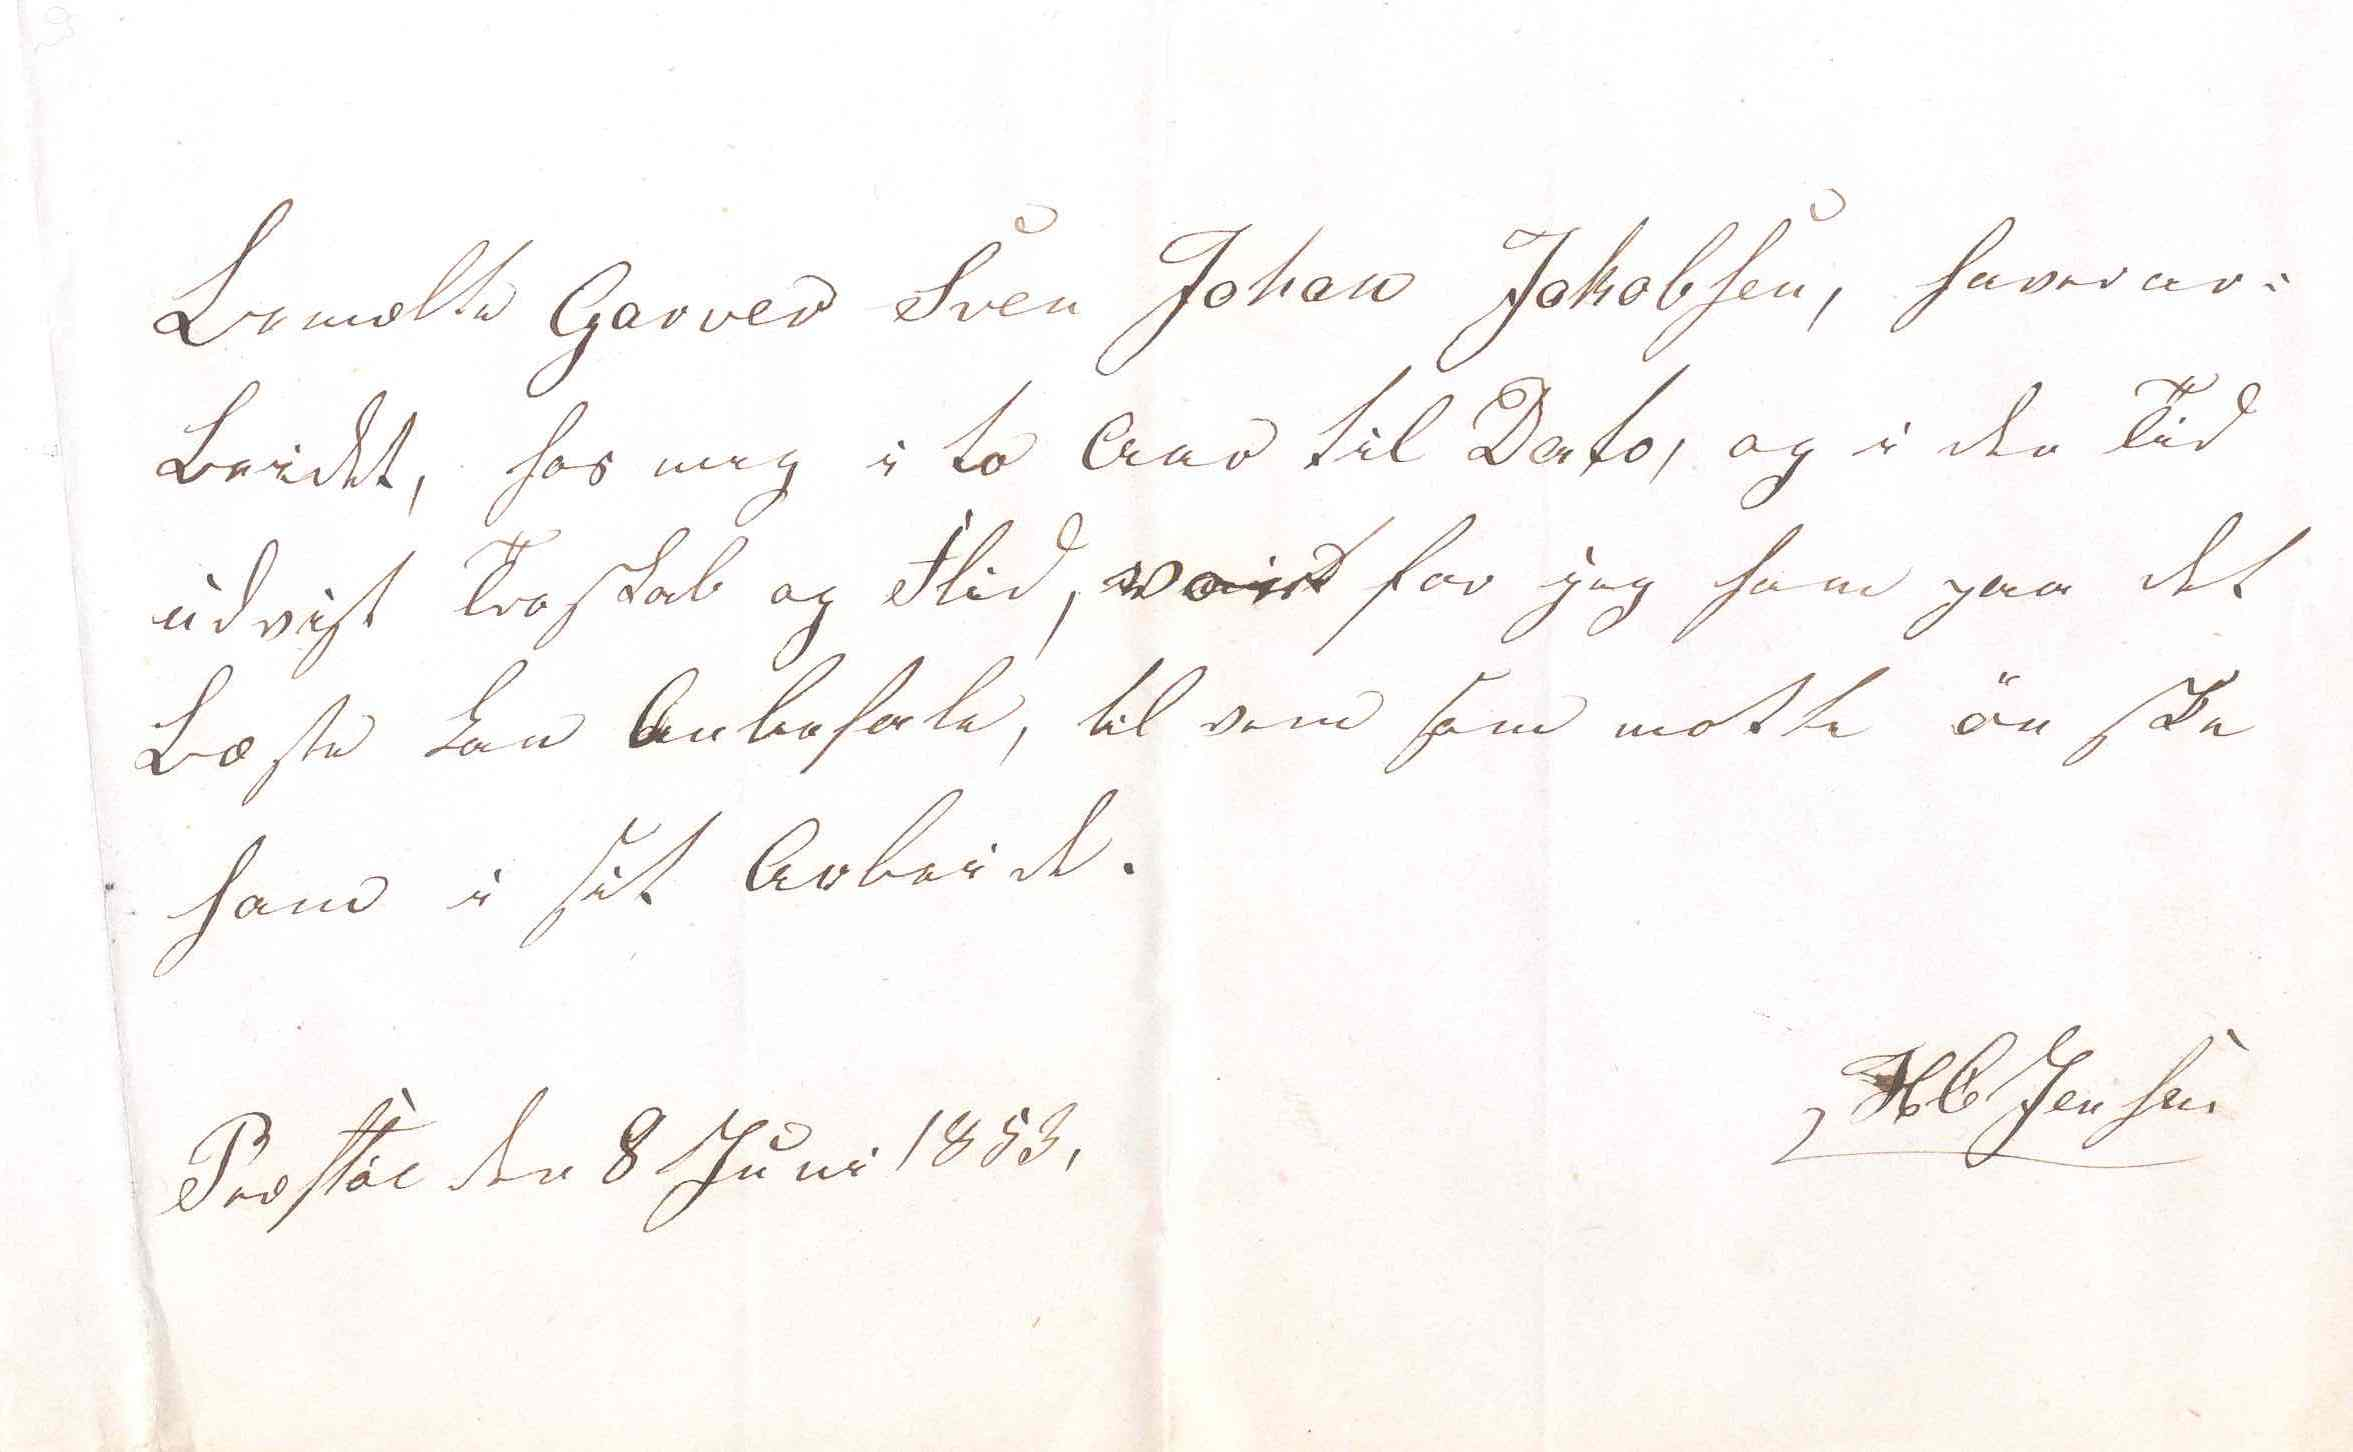 Bemelte Garver Sven Johan Jakobsen, haver ar:
beidet, hos meg i to Aar til Dato, og i den Tid
udvist Troskab og Flid, for jeg ham paa det
beste kan Anbefale, til vem som motte önske
ham i sit Arbeide.
Præstöe den 8 Juni 1853,
HC Jensen